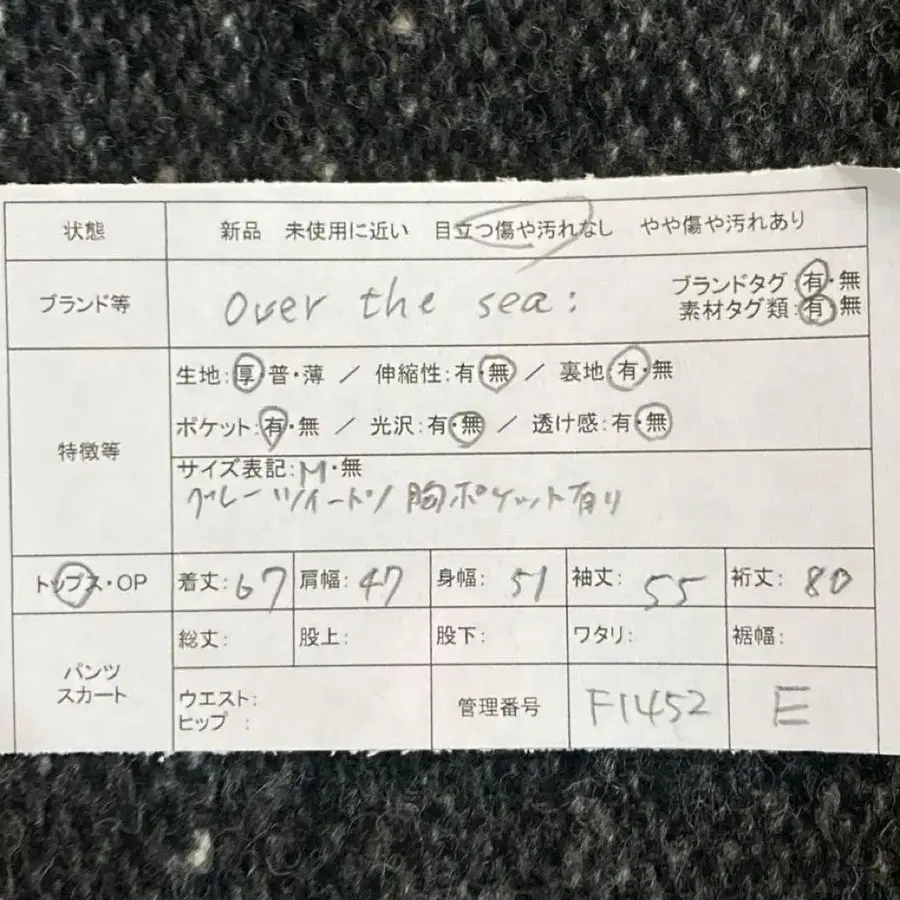 状態 新品 未使用に近い 目立つ傷や汚れなし やや傷や汚れあり
ブランド等 Over the sea: ブランドタグ 有・無
素材タグ類:有・無
特徴等 生地:厚・普・薄 / 伸縮性:有・無 / 裏地:有・無
ポケット:有・無 / 光沢:有・無 / 透け感:有・無
サイズ表記:M・無
グレー ツイード 胸ポケット有り
トップス・OP 着丈:67 肩幅:47 身幅:51 袖丈:55 裄丈:80
パンツ スカート 総丈: 股上: 股下: ワタリ: 裾幅:
ウエスト:
ヒップ : 管理番号 F1452 E